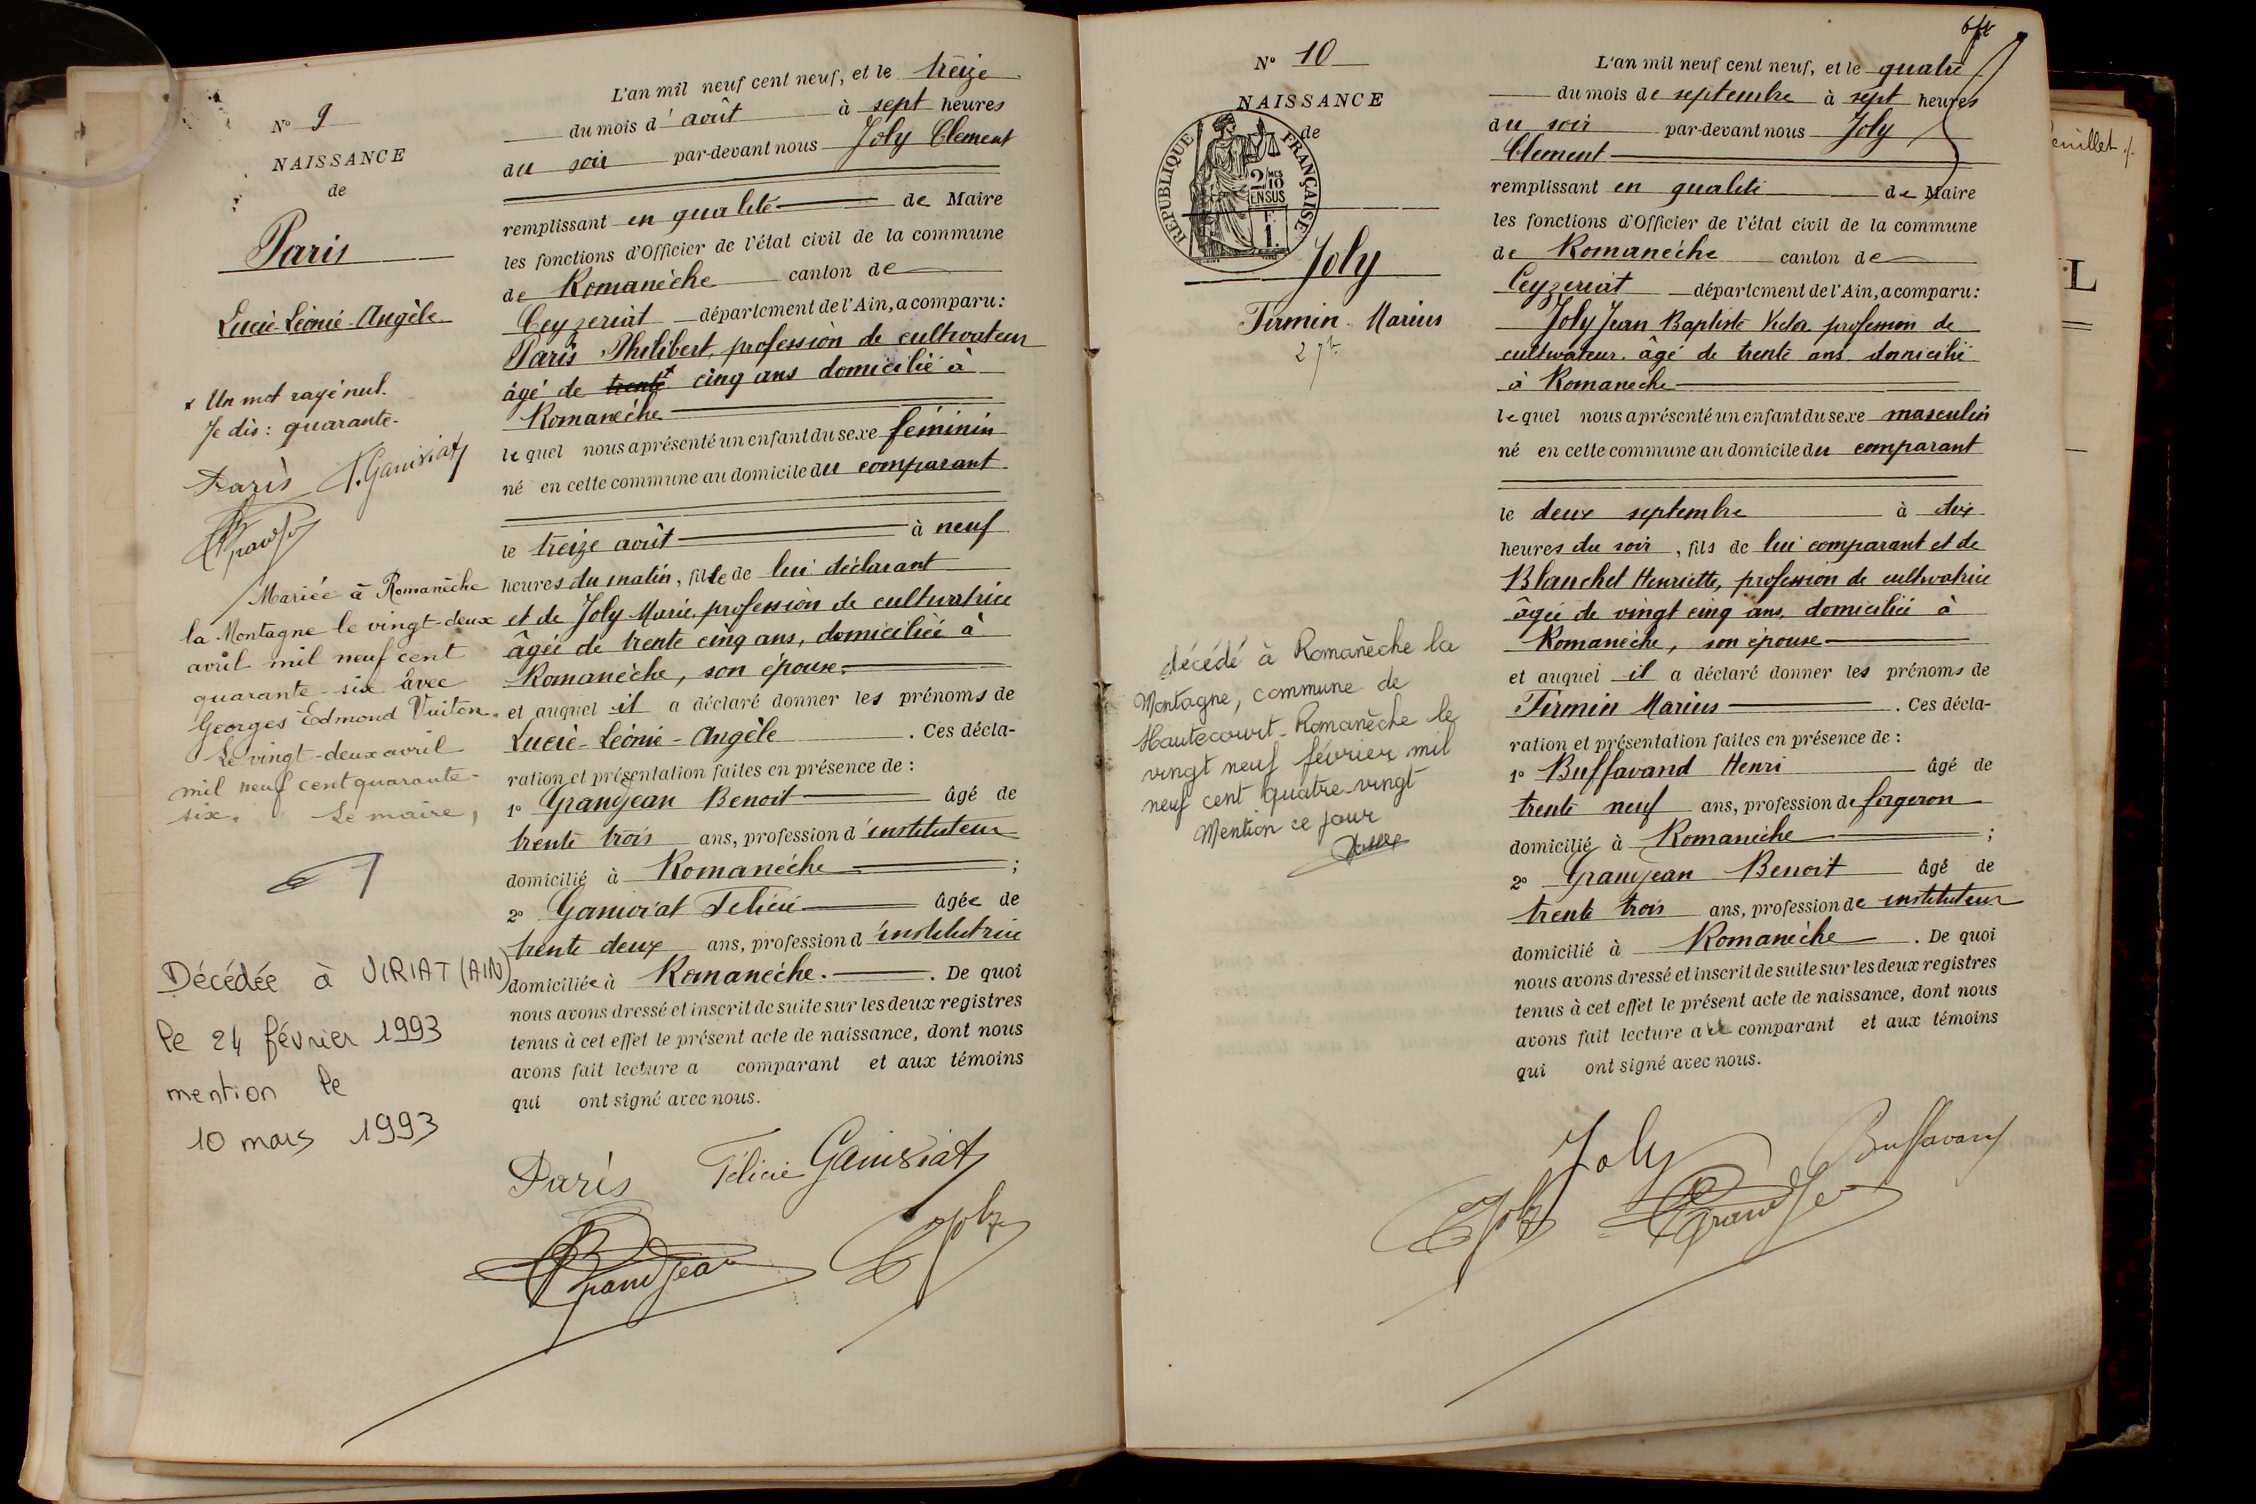 N° 9
NAISSANCE
de
Paris
Lucie-Léonie-Angèle
x Un mot rayé nul.
Je dis : quarante.
Paris F. Gauiviat
Grandjean
Mariée à Romanèche
la Montagne le vingt-deux
avril mil neuf cent
quarante-six avec
Georges Edmond Vuiton.
Le vingt-deux avril
mil neuf cent quarante-
six. Le maire,
Décédée à VIRIAT (AIN)
le 24 février 1993
mention le
10 mars 1993
L'an mil neuf cent neuf, et le treize
du mois d'août à sept heures
du soir par-devant nous Joly Clement
remplissant en qualité de Maire
les fonctions d'Officier de l'état civil de la commune
de Romanèche canton de
Ceyzeriat département de l'Ain, a comparu :
Paris Philibert, profession de cultivateur
âgé de trente x cinq ans domicilié à
Romanèche
lequel nous a présenté un enfant du sexe féminin
né en cette commune au domicile du comparant
le treize août à neuf
heures du matin, fille de lui déclarant
et de Joly Marie, profession de cultivatrice
âgée de trente cinq ans, domiciliée à
Romanèche, son épouse.
et auquel il a déclaré donner les prénoms de
Lucie-Léonie-Angèle . Ces décla-
ration et présentation faites en présence de :
1° Grandjean Benoit âgé de
trente trois ans, profession d'instituteur
domicilié à Romanèche ;
2° Gauiviat Felicie âgée de
trente deux ans, profession d'institutrice
domiciliée à Romanèche. . De quoi
nous avons dressé et inscrit de suite sur les deux registres
tenus à cet effet le présent acte de naissance, dont nous
avons fait lecture a comparant et aux témoins
qui ont signé avec nous.
Paris Félicie Gauiviat
Grandjean C Joly
N° 10
NAISSANCE
de
REPUBLIQUE FRANÇAISE
2/10 MES
EN SUS
1 F.
Joly
Firmin-Marius
décédé à Romanèche la
Montagne, commune de
Hautecourt-Romanèche le
vingt neuf février mil
neuf cent quatre-vingt
Mention ce jour
L'an mil neuf cent neuf, et le quatre
du mois de septembre à sept heures
du soir par-devant nous Joly
Clement
remplissant en qualité de Maire
les fonctions d'Officier de l'état civil de la commune
de Romanèche canton de
Ceyzeriat département de l'Ain, a comparu :
Joly Jean Baptiste Victor profession de
cultivateur âgé de trente ans domicilié
à Romanèche
lequel nous a présenté un enfant du sexe masculin
né en cette commune au domicile du comparant
le deux septembre à dix
heures du soir, fils de lui comparant et de
Blanchet Henriette, profession de cultivatrice
âgée de vingt cinq ans, domiciliée à
Romanèche, son épouse
et auquel il a déclaré donner les prénoms de
Firmin Marius . Ces décla-
ration et présentation faites en présence de :
1° Buffavand Henri âgé de
trente neuf ans, profession de forgeron
domicilié à Romanèche ;
2° Grandjean Benoit âgé de
trente trois ans, profession de instituteur
domicilié à Romanèche . De quoi
nous avons dressé et inscrit de suite sur les deux registres
tenus à cet effet le présent acte de naissance, dont nous
avons fait lecture a le comparant et aux témoins
qui ont signé avec nous.
Joly Buffavand
C Joly Grandjean
feuillet
L